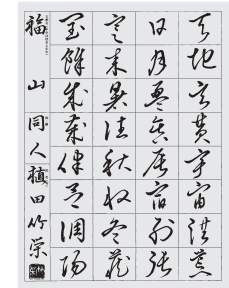 天地玄黄宇宙洪荒
日月盈昃辰宿列張
寒来暑往秋収冬蔵
閏餘成歳律呂調陽
福山 同人 植田竹栄